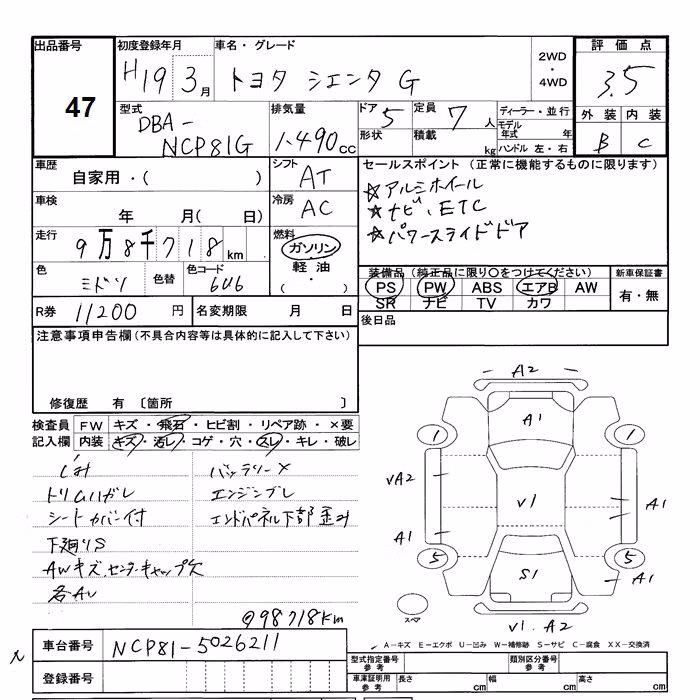 出品番号 初度登録年月 車名・グレード 2WD ・ 4WD 評価点
47 H19 3月 トヨタ シエンタ G 3.5
型式 排気量 ドア 5 定員 7人 ディーラー・並行 外装 内装
DBA-NCP81G 1.490cc 形状 積載 kg モデル年式 年 ハンドル 左・右 B C
車歴 シフト セールスポイント(正常に機能するものに限ります)
自家用・( ) AT ☆アルミホイール
車検 冷房 ☆ナビ、ETC
年 月( 日) AC ☆パワースライドドア
走行 9万8千718km 燃料 ガソリン
軽油
( ・ )
色 ミドリ 色替 色コード 6U6
装備品(純正品に限り○をつけてください) 新車保証書
PS PW ABS エアB AW 有・無
SR ナビ TV カワ
R券 11200円 名変期限 月 日 後日品
注意事項申告欄(不具合内容等は具体的に記入して下さい)
修復歴 有 〔箇所 〕
検査員 FW キズ・飛石・ヒビ割・リペア跡・×要
記入欄 内装 キズ・汚レ・コゲ・穴・スレ・キレ・破レ
バッテリー×
トリムハガレ エンジンブレ
シートカバー付 エンドパネル下部歪み
下廻りS
AWキズ、センターキャップ欠
各AU
@98718km
A2
A1
1 1
VA2 V1 A1
A1
5 5
S1 A1
スペア
V1. A2
A-キズ E-エクボ U-凹み W-補修跡 S-サビ C-腐食 XX-交換済
車台番号 NCP81-5026211
登録番号
型式指定番号 参考 類別区分番号 参考
車庫証明用 参考 長さ cm 幅 cm 高さ cm